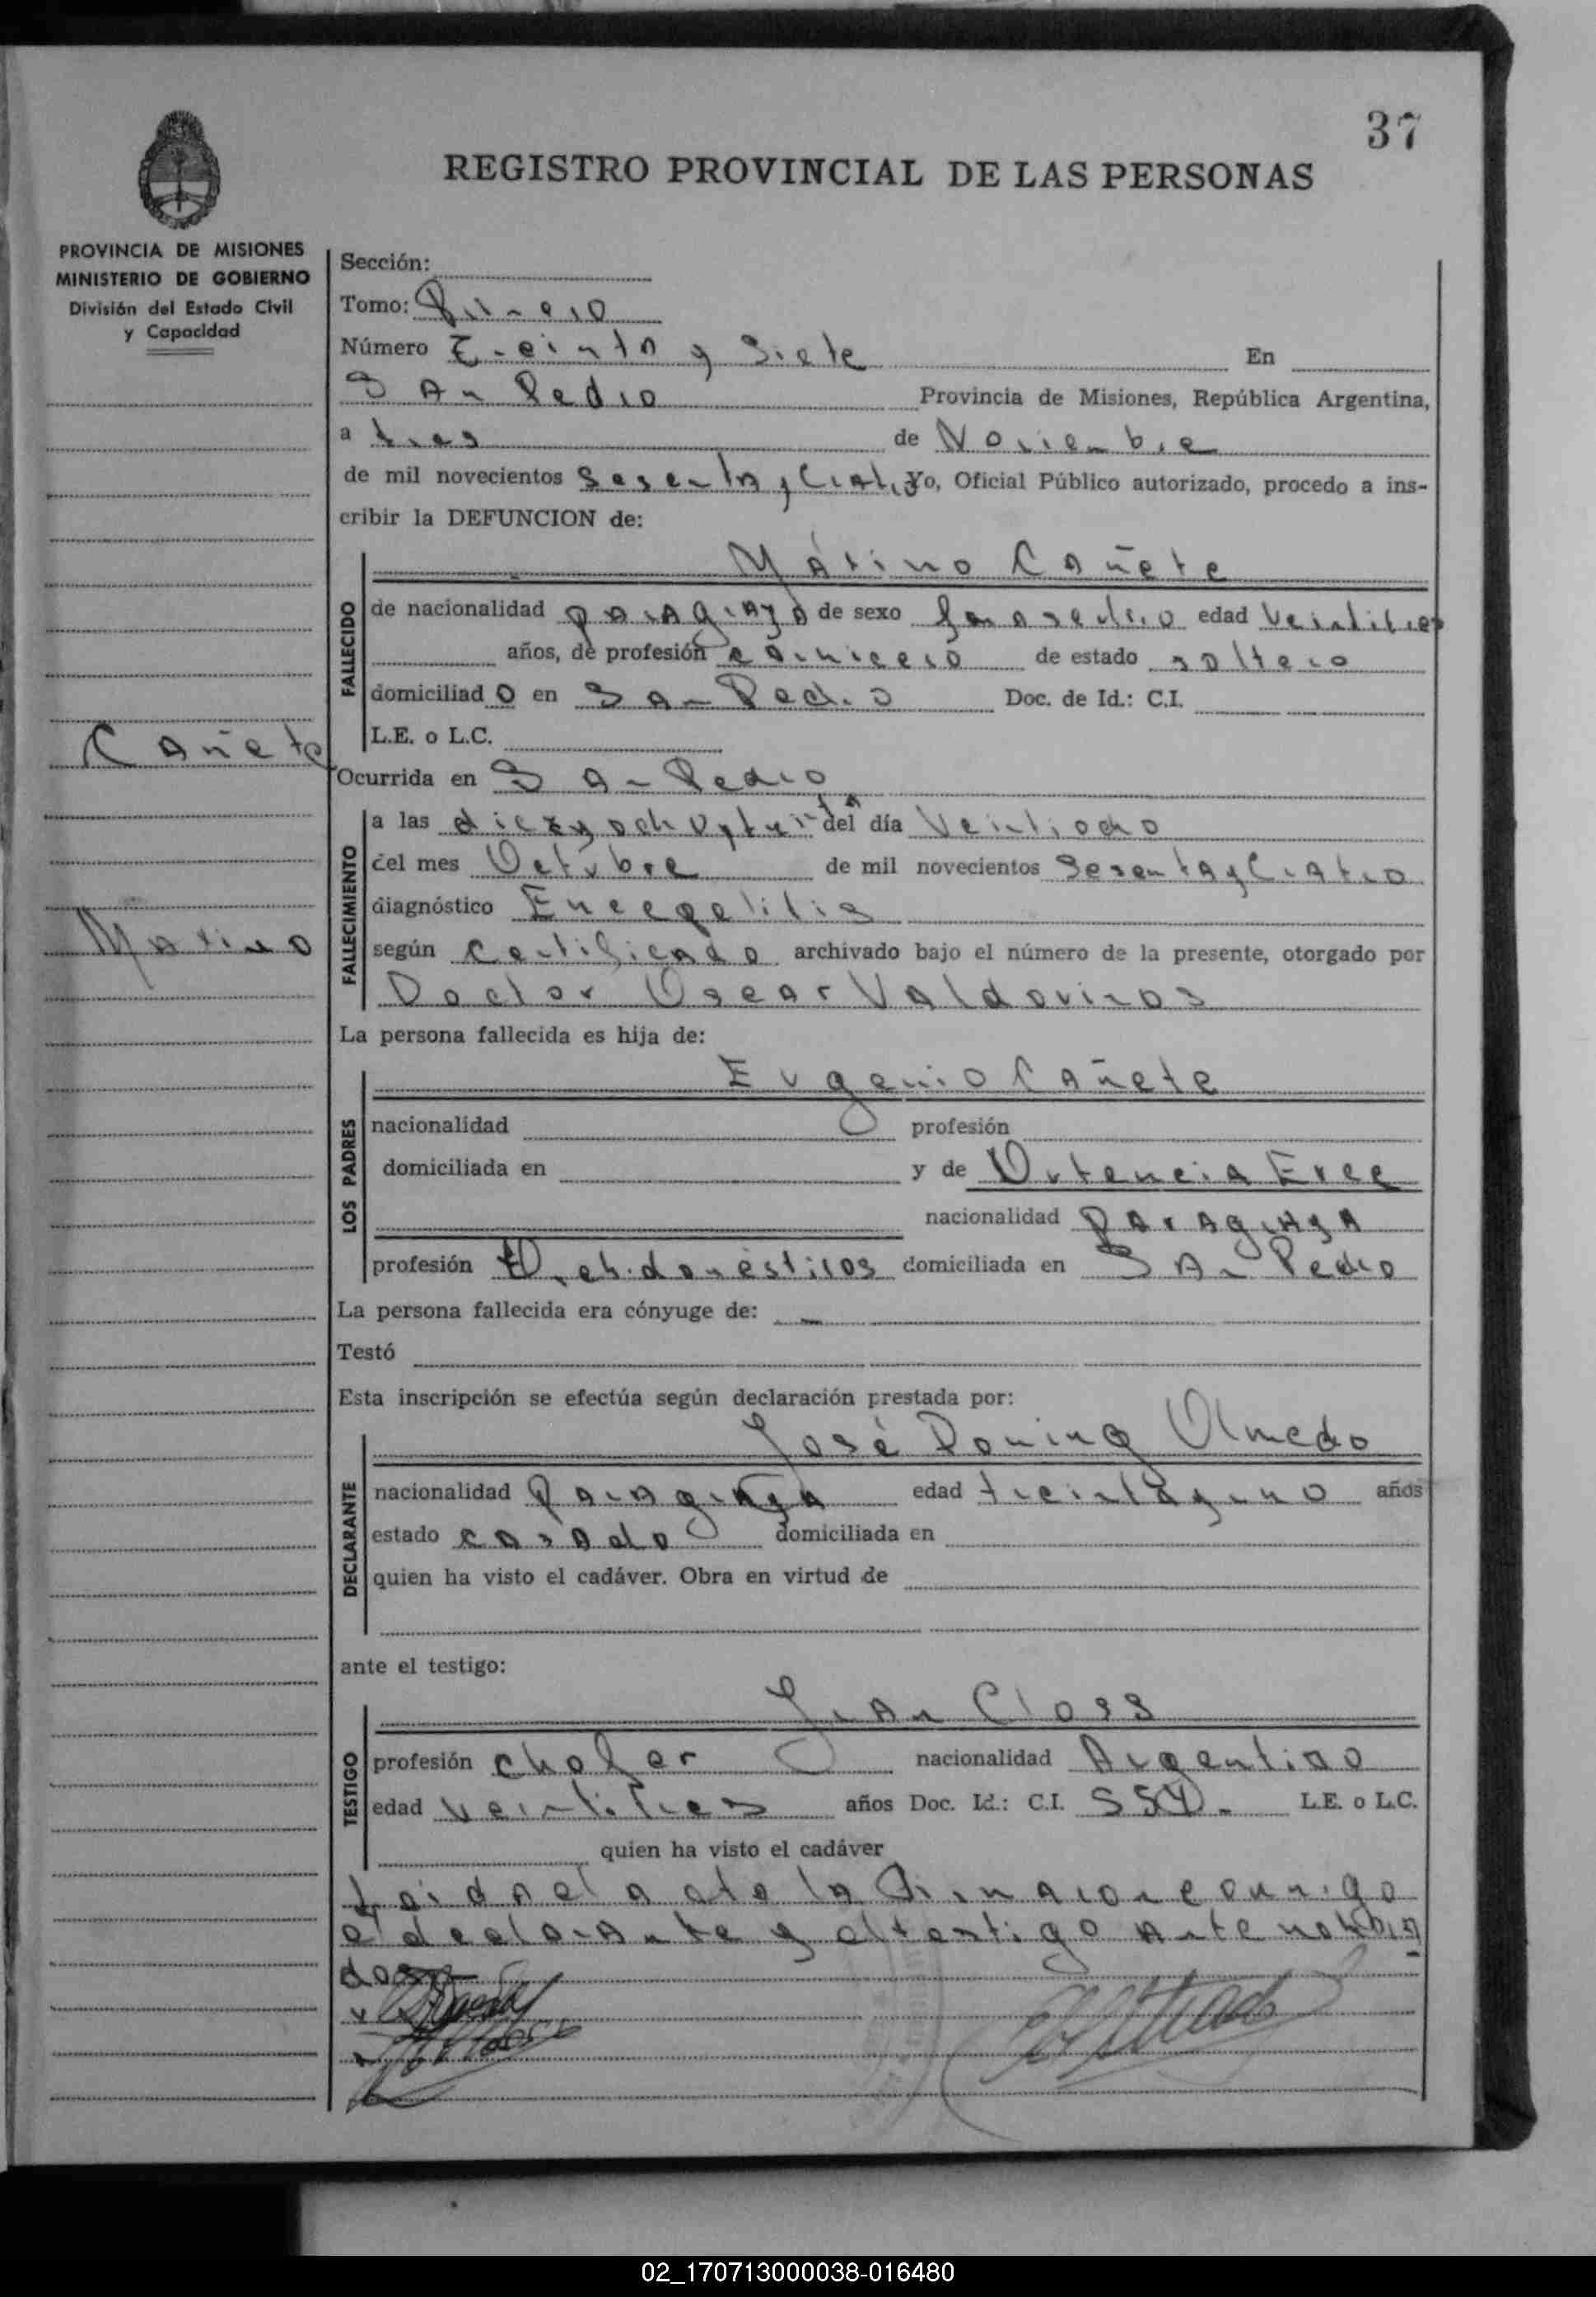 37
REGISTRO PROVINCIAL DE LAS PERSONAS
PROVINCIA DE MISIONES
MINISTERIO DE GOBIERNO
División del Estado Civil
y Capacidad
Cañete
Marino
Sección:
Tomo: Primero
Número Treinta y Siete En
San Pedro Provincia de Misiones, República Argentina,
a tres de Noviembre
de mil novecientos Sesenta y Cuatro, Yo, Oficial Público autorizado, procedo a ins-
cribir la DEFUNCION de:
Márino Cañete
FALLECIDO
de nacionalidad paraguayo de sexo edad Veintitres
años, de profesión carnicero de estado soltero
domiciliad o en San Pedro Doc. de Id.: C.I.
L.E. o L.C.
Ocurrida en San Pedro
FALLECIMIENTO
a las diez y ocho y treinta del día Veintiocho
del mes Octubre de mil novecientos Sesenta y Cuatro
diagnóstico
según Certificado archivado bajo el número de la presente, otorgado por
Doctor Oscar Valdovinos
La persona fallecida es hija de:
LOS PADRES
Eugenio Cañete
nacionalidad profesión
domiciliada en y de Ortencia
nacionalidad Paraguaya
profesión domésticos domiciliada en San Pedro
La persona fallecida era cónyuge de: —
Testó
Esta inscripción se efectúa según declaración prestada por:
DECLARANTE
José Domingo Olmedo
nacionalidad Paraguaya edad treinta y uno años
estado casado domiciliada en
quien ha visto el cadáver. Obra en virtud de
ante el testigo:
TESTIGO
Juan Closs
profesión chofer nacionalidad Argentino
edad Veintitres años Doc. Id.: C.I. L.E. o L.C.
quien ha visto el cadáver
Leida el acta la firmaron conmigo
el declarante y el testigo ante
02_170713000038-016480